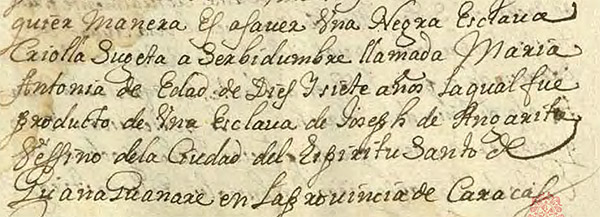 quier Manera Es asaver Una Negra Esclava
Criolla Sugeta a Serbidumbre llamada Maria
Antonia de Edad de Dies Y siete años laqual fue
producto de Una Esclava de Joseph de Angarita
Vessino dela Ciudad del Espiritu Santo de
Guanaguanare en La provincia de Caracas